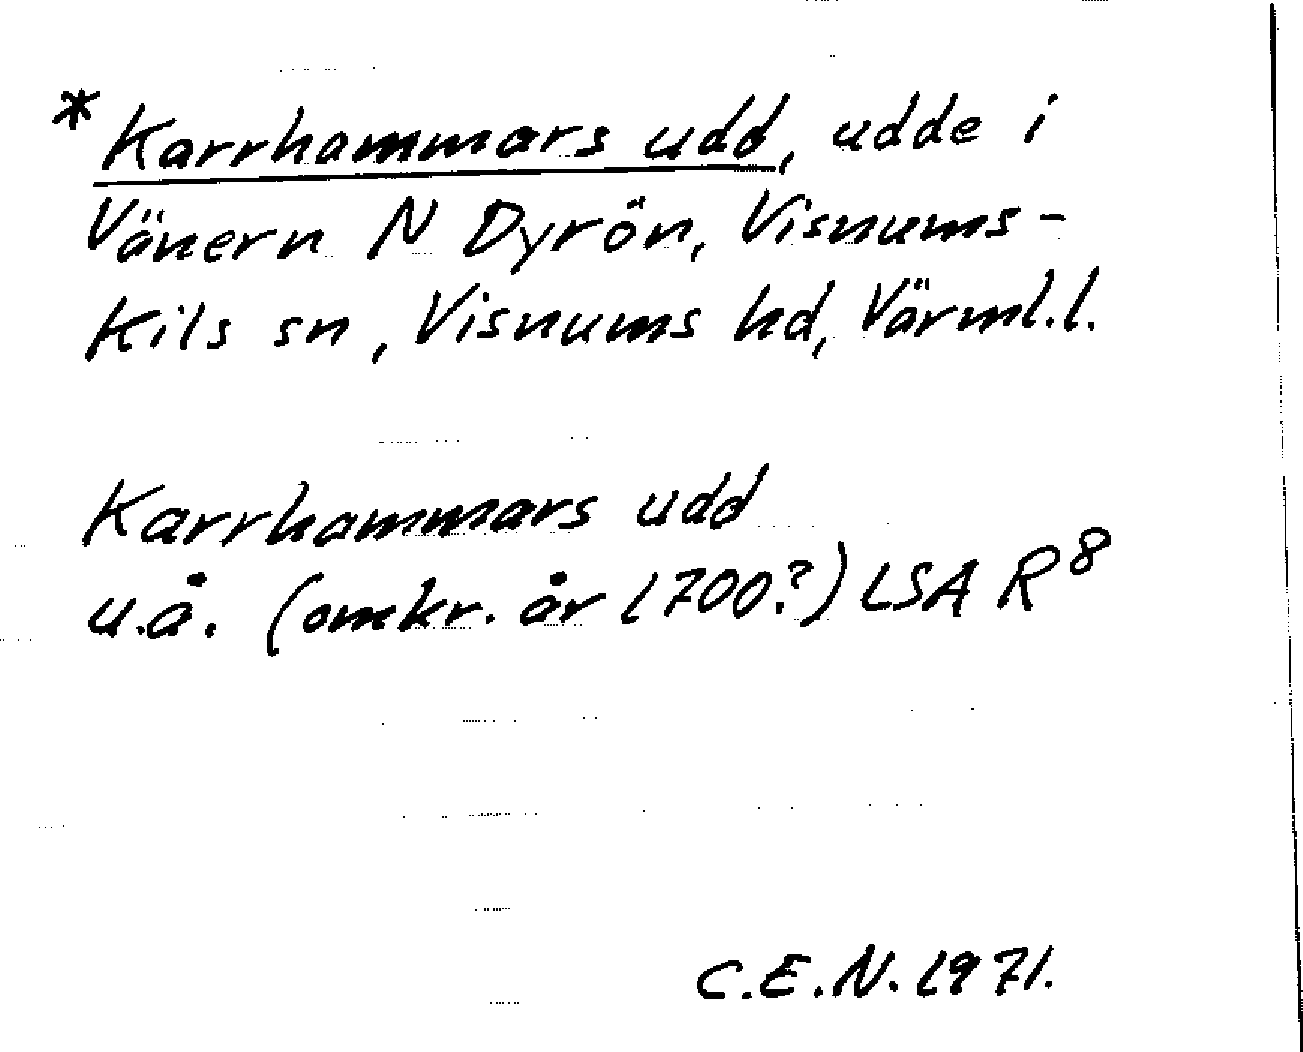 * Karrhammars udd, udde i
Vänern N Dyrön, Visnums-
Kils sn, Visnums hd, Värml.l.
Karrhammars udd
u.å. (omkr. år 1700?) LSA R8
C.E.N. 1971.